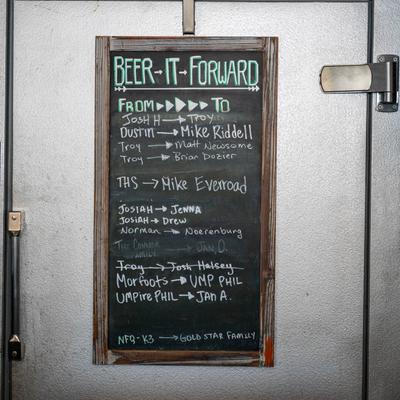 BEER→IT→FORWARD
FROM ▸▸▸▸▸ TO
JOSH H → TROY
DUSTIN → MIKE RIDDELL
TROY → MATT NEWSOME
TROY → BRIAN DOZIER
THS → MIKE EVERROAD
JOSIAH → JENNA
JOSIAH → DREW
NORMAN → NOERENBURG
THE FAMILY → JAN O.
TROY → JOSH HALSEY
MORFOOTS → UMP PHIL
UMPIRE PHIL → JAN A.
NFQ-K3 → GOLD STAR FAMILY